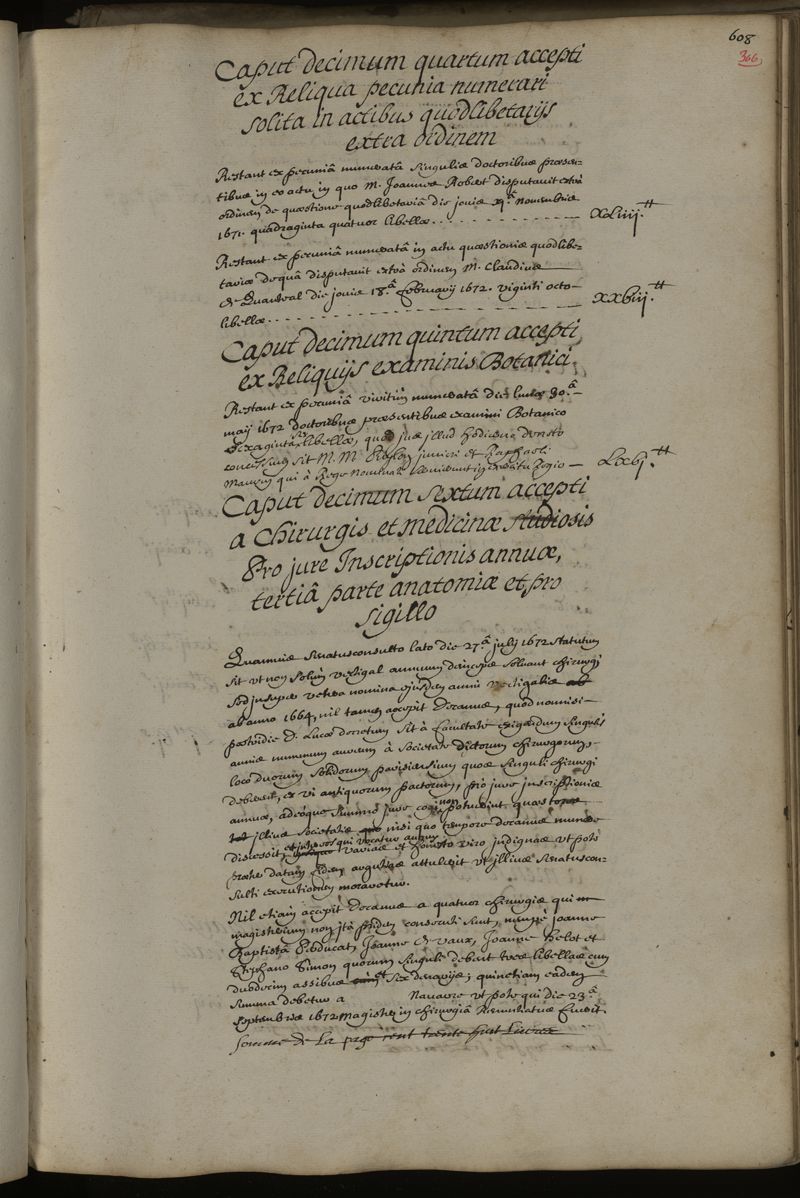 608
366
Caput decimum quartum accepti
ex Reliqua pecunia numerari
solita in actibus quodlibetarijs
extra ordinem
Restant ex pecuniâ numeratâ singulis doctoribus præsen-
tibus in eo actu in quo M. Joannes Robert disputavit extra
ordinem de quæstione quodlibetariâ die jovis novembris
1671. quadraginta quatuor libellæ. xLiiij.tt
Restant ex pecuniâ numeratâ in actu quæstionis quodlibe-
tariæ de quâ disputavit extrà ordinem M. Claudius
die jovis 18.â februarij 1672. viginti octo
libellæ. xxviij.tt
Caput decimum quintum accepti
ex Reliquijs examinis Botanici.
Restant ex pecuniâ viritim numeratâ die lunæ 30.â
maij 1672 doctoribus præsentibus examini Botanico
sexaginta sex libellæ, quod jus illud
sit M. M. juniori et Raphaeli
qui à Rege Lxvj.tt
Caput decimum sextum accepti
a Chirurgis et medicinæ studiosis
Pro jure Inscriptionis annuæ,
tertiâ parte anatomiæ et pro
sigillo
Quamvis senatusconsulto lato die 27.â julij 1672 statutum
sit ut non solùm vectigal annuum deinceps solvant chirurgi
sed insuper vetera nomina ejusdem annui vectigalis ab
ab anno 1664, nil tamen accepit Decanus, quod nonnisi
postridie D. Lucæ decretum sit à facultate exigendum singulis
annis nummum aureum à societate dictorum chirurgorum,
loco duorum solidorum parisiensium quos singuli chirurgi
debebant, ex vi antiquorum pactorum, prò jure inscriptionis
annuæ, adeoque summo jure cogi non potuerint
illius societatis nisi quo tempore decanus munere
discessit, et
viro indignas ut potè
argutias attulerit ut illius senatuscon-
sulti executionem moraretur.
Nil etiam accepit Decanus a quatuor chirurgis qui
magisterium non ità pridem consecuti sunt, nempe joanne
Baptistâ Joanne Joanne Belot et
Stephano Simon quorum singuli debent tres libellas cum
duodecim assibus et sex denarijs; quinetiam eadem
summa debetur a Navarre ut potè qui die 23.â
septembris 1672 magister in chirurgiâ renuntiatus fuerit.
somme de La page cent trente huit Livres